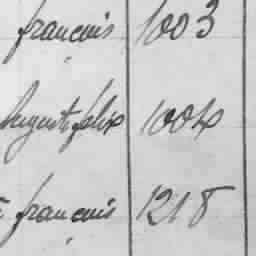 françois 1003
Auguste felix 1004
françois 1218